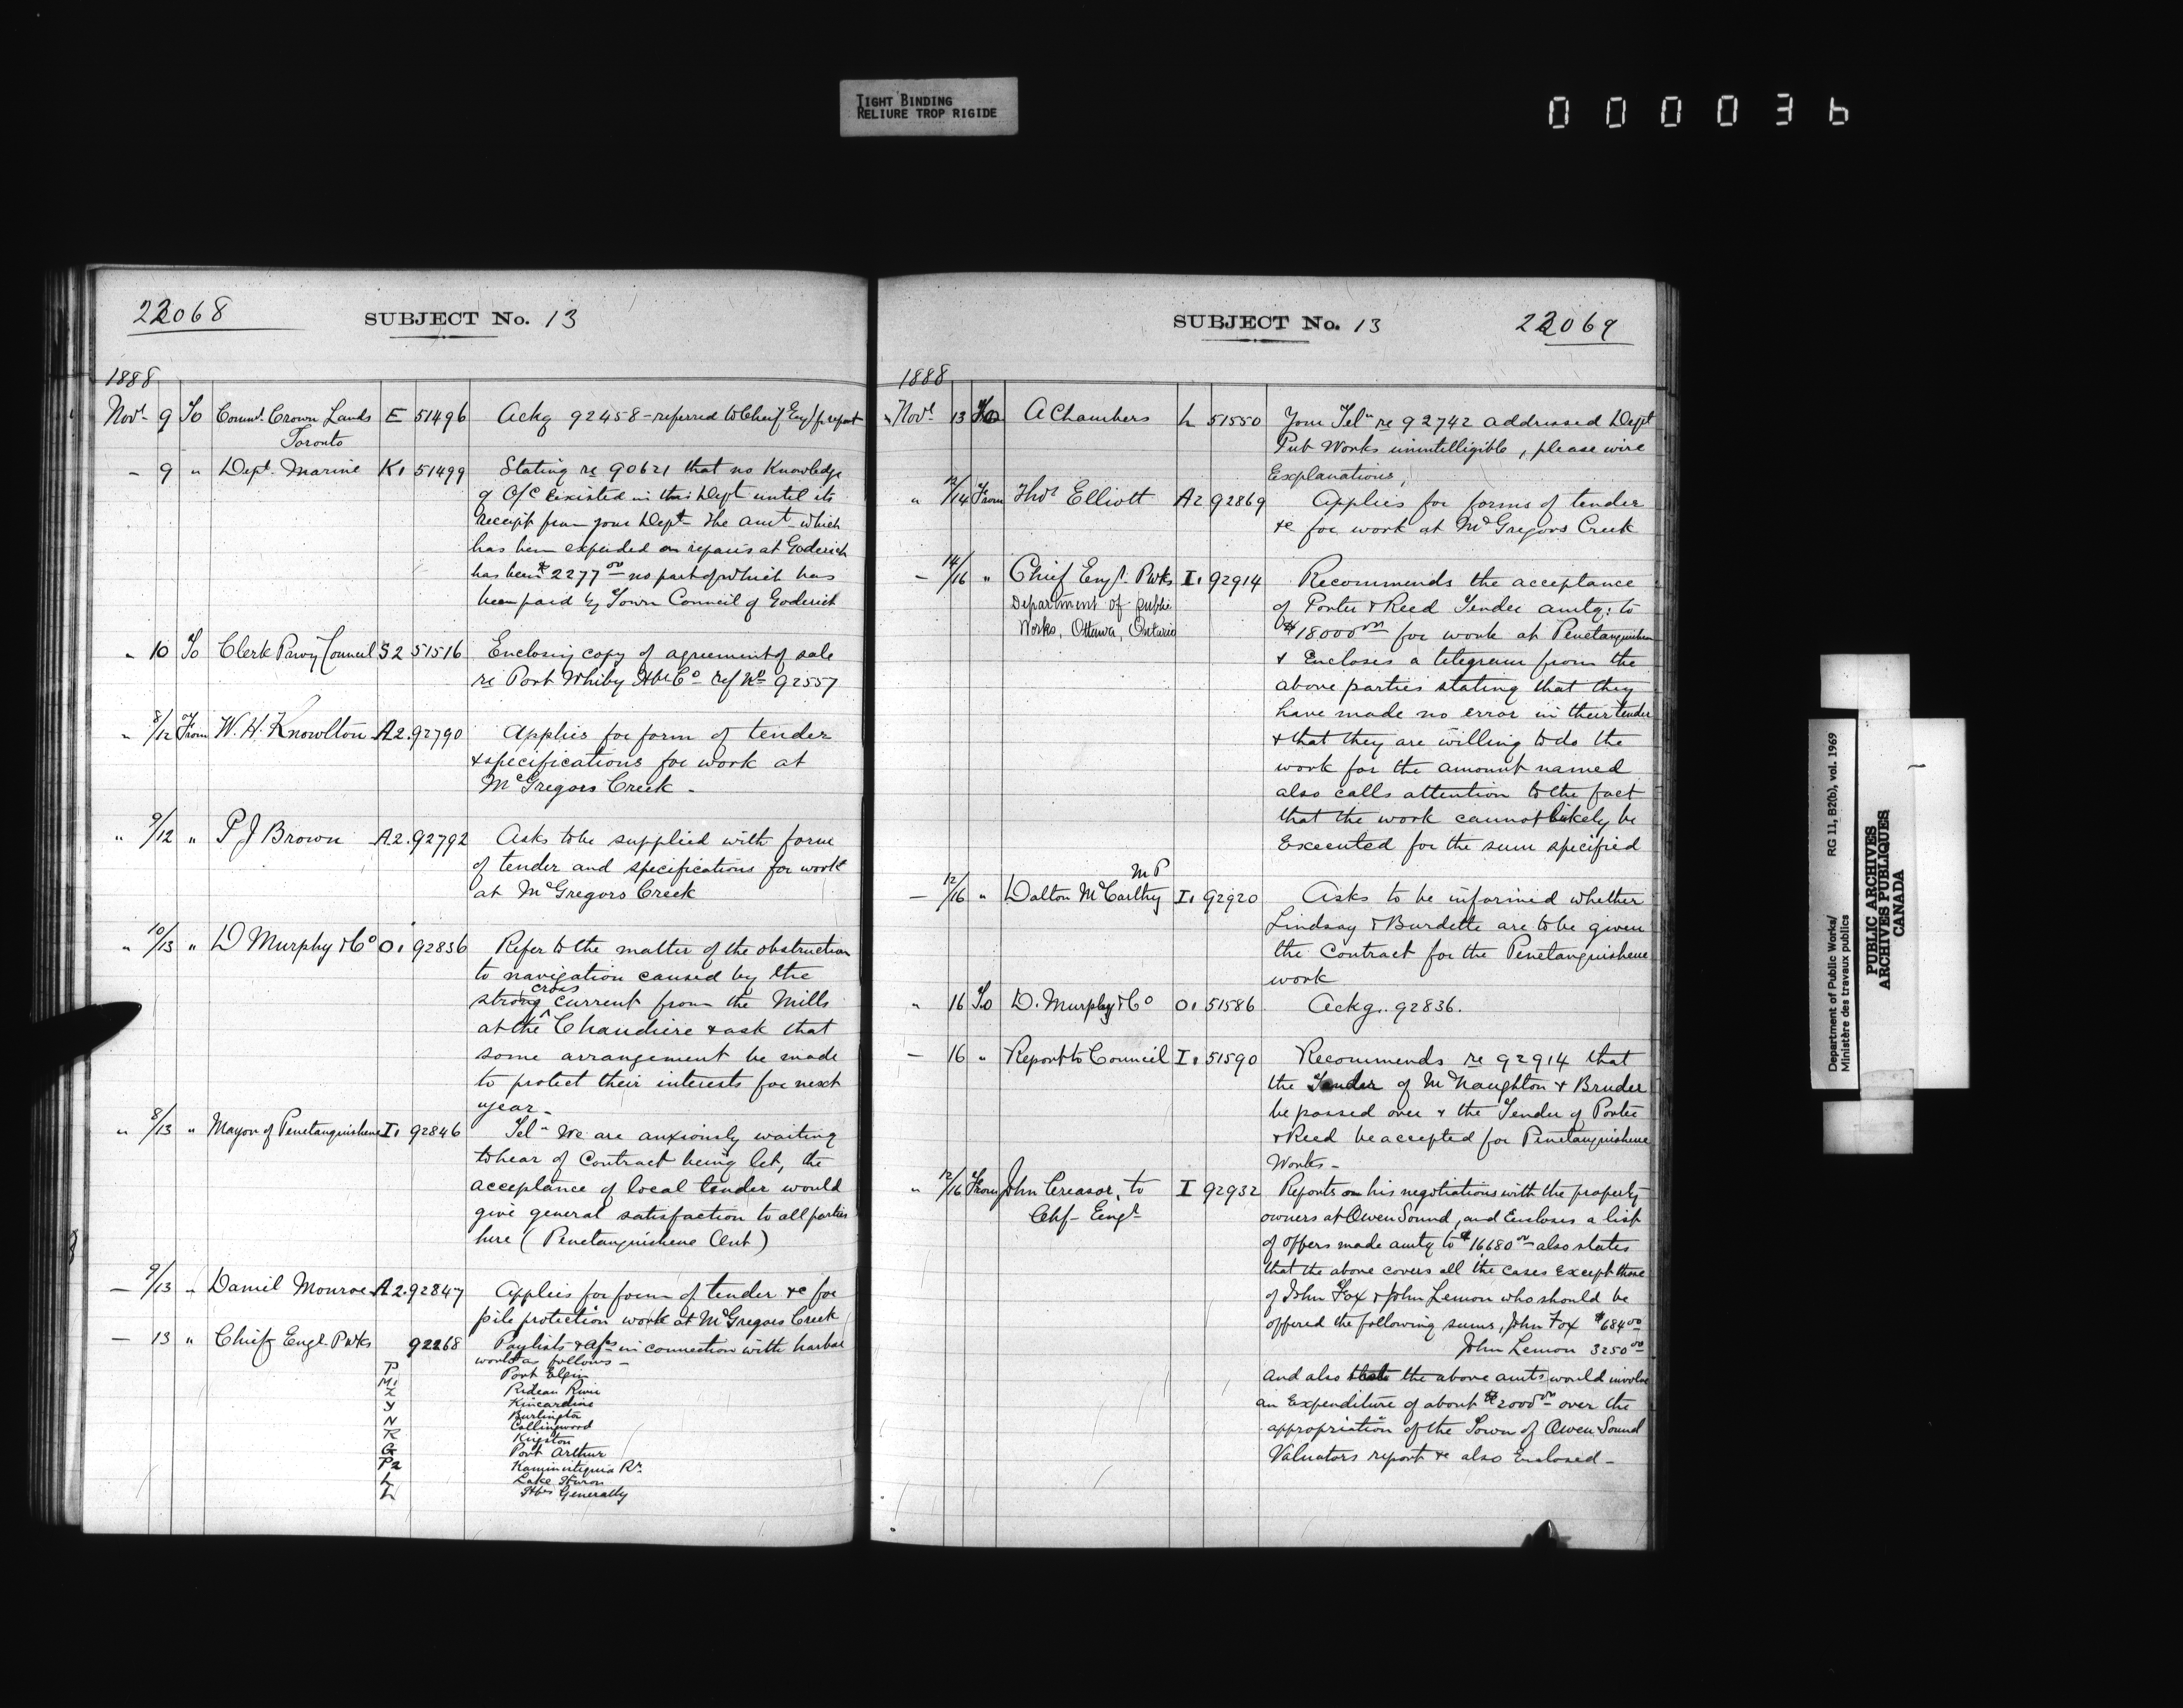 TIGHT BINDING
RELIURE TROP RIGIDE
000036
22068
SUBJECT No. 13
1888
Novr 9 To Commr. Crown Lands E 51496 Ackg 92458 - referred to Chief Engr f report
Toronto
- 9 " Dept. Marine K1 51499 Stating re 90621 that no Knowledge
of O/C existed in this Dept until its
receipt from your Dept - The amt - which
has been expended on repairs at Goderich
has been $2277.00 - no part of which has
been paid by Town Council of Goderich
" 10 To Clerk Privy Council S2 51516 Enclosing copy of agreement of sale
re Port Whitby Hbr Co - ref No 92557
" 8/12 From W. H. Knowlton A2. 92790 Applies for form of tender
& specifications for work at
McGregors Creek -
" 9/12 " P J Brown A2. 92792 Asks to be supplied with form
of tender and specifications for work
at McGregors Creek
" 10/13 " D Murphy & Co O1 92836 Refer to the matter of the obstruction
to navigation caused by the
strong cross current from the Mills
at the Chaudiere & ask that
some arrangement be made
to protect their interests for next
year -
" 8/13 " Mayor of Penetanguishene I1 92846 Tel " We are anxiously waiting
to hear of Contract being let, the
acceptance of local tender would
give general satisfaction to all parties
here (Penetanguishene Ont)
- 9/13 " Daniel Monroe A2. 92847 Applies for form of tender &c for
pile protection work at McGregors Creek
- 13 " Chief Engr. P Wks 92268 Paylists & a/cs in connection with harbor
works as follows -
P Port Elgin
M1 Rideau River
Z Kincardine
Y Burlington
N Collingwood
R Kingston
G Port Arthur
P2 Kaministiquia Rr.
L Lake Huron
L Hbrs Generally
SUBJECT No. 13
22069
1888
" Novr 13 To A Chambers L 51550 Your Tel" re 92742 addressed Dept
Pub Works unintelligible, please wire
Explanations,
" 12/14 From Thos Elliott A2 92869 Applies for forms of tender
&c for work at McGregors Creek
- 14/16 " Chief Engr. P Wks I1 92914 Recommends the acceptance
Department of public
Works, Ottawa, Ontario
of Porter & Reed Tender amtg: to
$18000.00 for work at Penetanguishene
& Encloses a telegram from the
above parties stating that they
have made no error in their tender
& that they are willing to do the
work for the amount named
also calls attention to the fact
that the work cannot likely be
Executed for the sum specified
M P
- 12/16 " Dalton McCarthy I1 92920 Asks to be informed whether
Lindsay & Burdette are to be given
the Contract for the Penetanguishene
work
" 16 To D. Murphy & Co O1 51586 Ackg. 92836.
- 16 " Report to Council I1 51590 Recommends re 92914 that
the Tender of McNaughton & Bruder
be passed over & the Tender of Porter
& Reed be accepted for Penetanguishene
Works -
" 12/16 From John Creasor, to I 92932 Reports on his negotiations with the property
Chf - Engr
owners at Owen Sound, and Encloses a list
of offers made amtg to $16680.00 - also states
that the above covers all the cases Except those
of John Fox & John Lemon who should be
offered the following sums, John Fox $684.00
John Lemon 3250.00
And also that the above amts would involve
an Expenditure of about $2000.00 - over the
appropriation of the Town of Owen Sound
Valuators report &c also Enclosed -
Department of Public Works/
Ministère des travaux publics
RG 11, B2(b), vol. 1969
PUBLIC ARCHIVES
ARCHIVES PUBLIQUES
CANADA